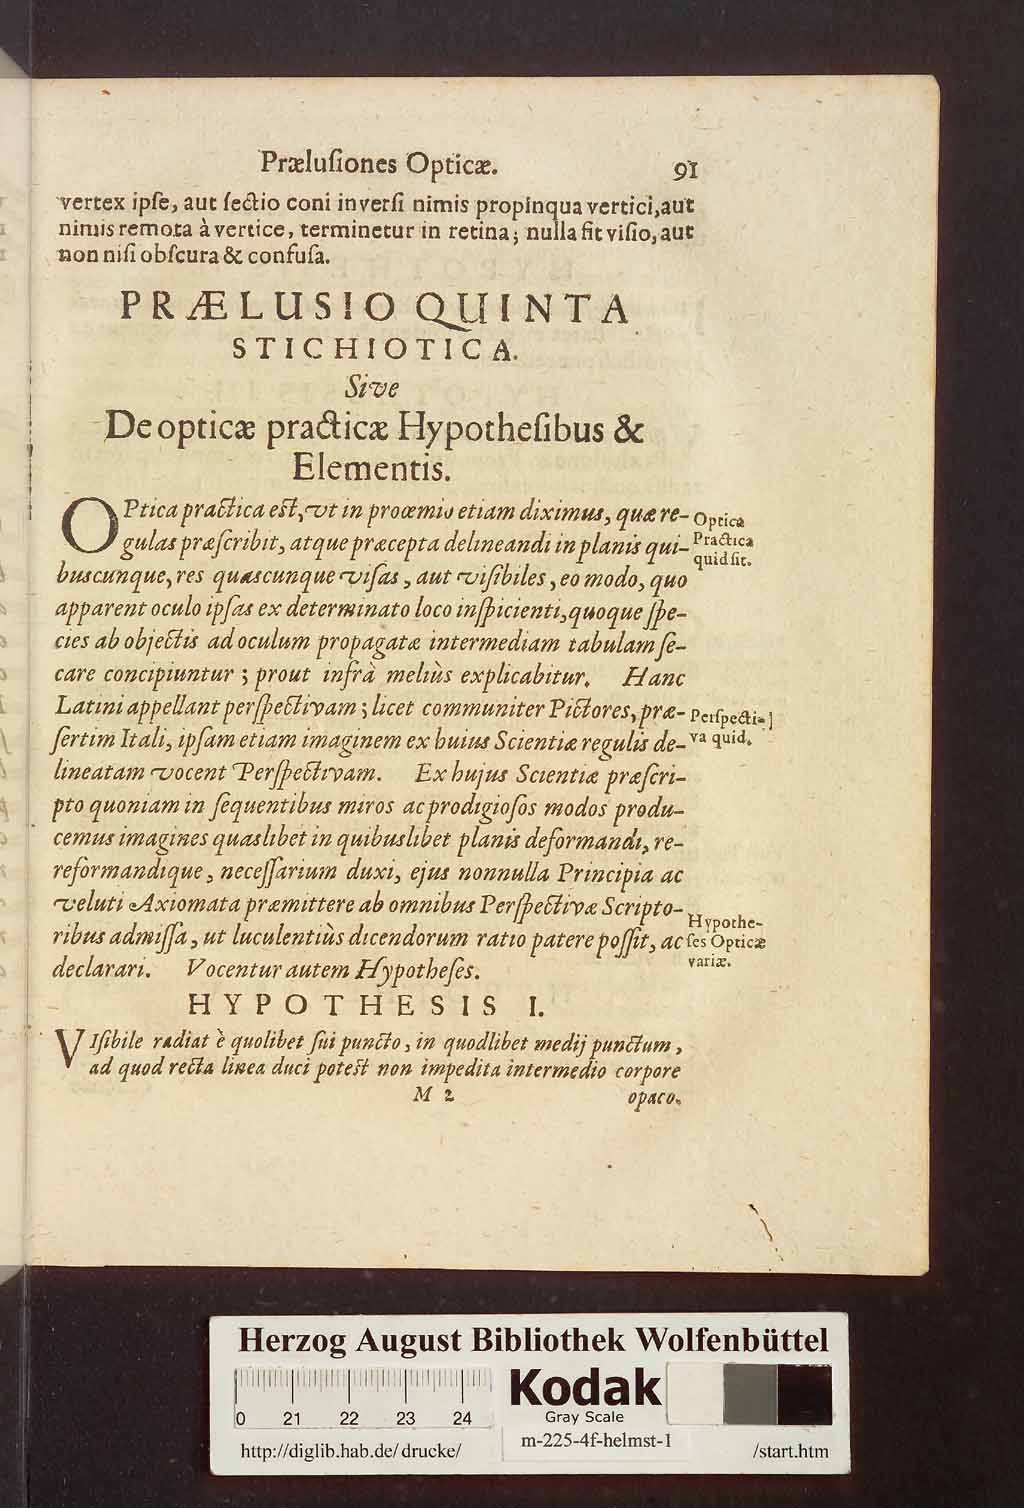 Prælusiones Opticæ. 91
vertex ipse, aut sectio coni inversi nimis propinqua vertici, aut
nimis remota à vertice, terminetur in retina; nulla fit visio, aut
non nisi obscura & confusa.
PRÆLUSIO QUINTA
STICHIOTICA.
Sive
De opticæ practicæ Hypothesibus &
Elementis.
OPtica practica est, ut in proœmio etiam diximus, quæ re-
gulas præscribit, atque præcepta delineandi in planis qui-
Optica
Practica
quid sit.
buscunque, res quascunque visas, aut visibiles, eo modo, quo
apparent oculo ipsas ex determinato loco inspicienti, quoque spe-
cies ab objectis ad oculum propagatæ intermediam tabulam se-
care concipiuntur; prout infrà meliùs explicabitur. Hanc
Latini appellant perspectivam; licet communiter Pictores, præ-
sertim Itali, ipsam etiam imaginem ex huius Scientiæ regulis de-
Perspecti-
va quid.
lineatam vocent Perspectivam. Ex hujus Scientiæ præscri-
pto quoniam in sequentibus miros ac prodigiosos modos produ-
cemus imagines quaslibet in quibuslibet planis deformandi, re-
reformandique, necessarium duxi, ejus nonnulla Principia ac
veluti Axiomata præmittere ab omnibus Perspectivæ Scripto-
ribus admissa, ut luculentiùs dicendorum ratio patere possit, ac
declarari. Vocentur autem Hypotheses.
Hypothe-
ses Opticæ
variæ.
HYPOTHESIS I.
VIsibile radiat è quolibet sui puncto, in quodlibet medij punctum,
ad quod recta linea duci potest non impedita intermedio corpore
M 2 opaco.
Herzog August Bibliothek Wolfenbüttel
0 21 22 23 24
Kodak
Gray Scale
http://diglib.hab.de/drucke/
m-225-4f-helmst-1
/start.htm